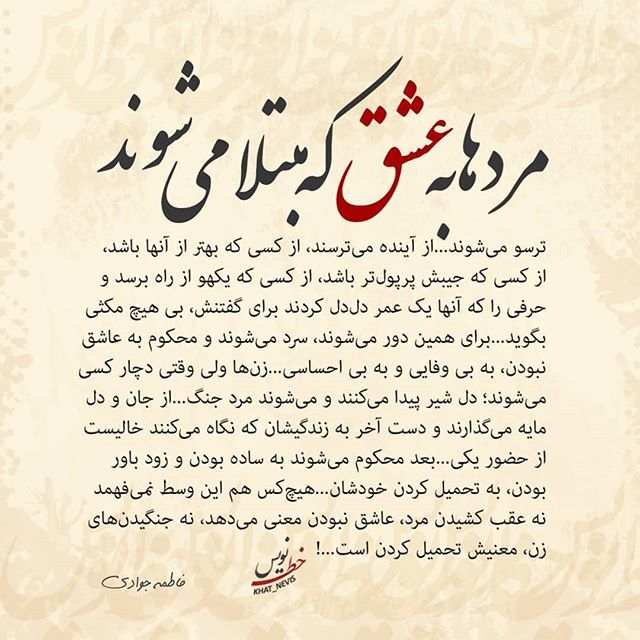 مردها به عشق که مبتلا می‌شوند
ترسو می‌شوند...از آینده می‌ترسند، از کسی که بهتر از آنها باشد،
از کسی که جیبش پرپول‌تر باشد، از کسی که یکهو از راه برسد و
حرفی را که آنها یک عمر دل‌دل کردند برای گفتنش، بی هیچ مکثی
بگوید...برای همین دور می‌شوند، سرد می‌شوند و محکوم به عاشق
نبودن، به بی وفایی و به بی احساسی...زن‌ها ولی وقتی دچار کسی
می‌شوند؛ دل شیر پیدا می‌کنند و می‌شوند مرد جنگ...از جان و دل
مایه می‌گذارند و دست آخر به زندگیشان که نگاه می‌کنند خالیست
از حضور یکی...بعد محکوم می‌شوند به ساده بودن و زود باور
بودن، به تحمیل کردن خودشان...هیچ‌کس هم این وسط نمی‌فهمد
نه عقب کشیدن مرد، عاشق نبودن معنی می‌دهد، نه جنگیدن‌های
زن، معنیش تحمیل کردن است...!
خط نویس
KHAT_NEVIS
فاطمه جوادی